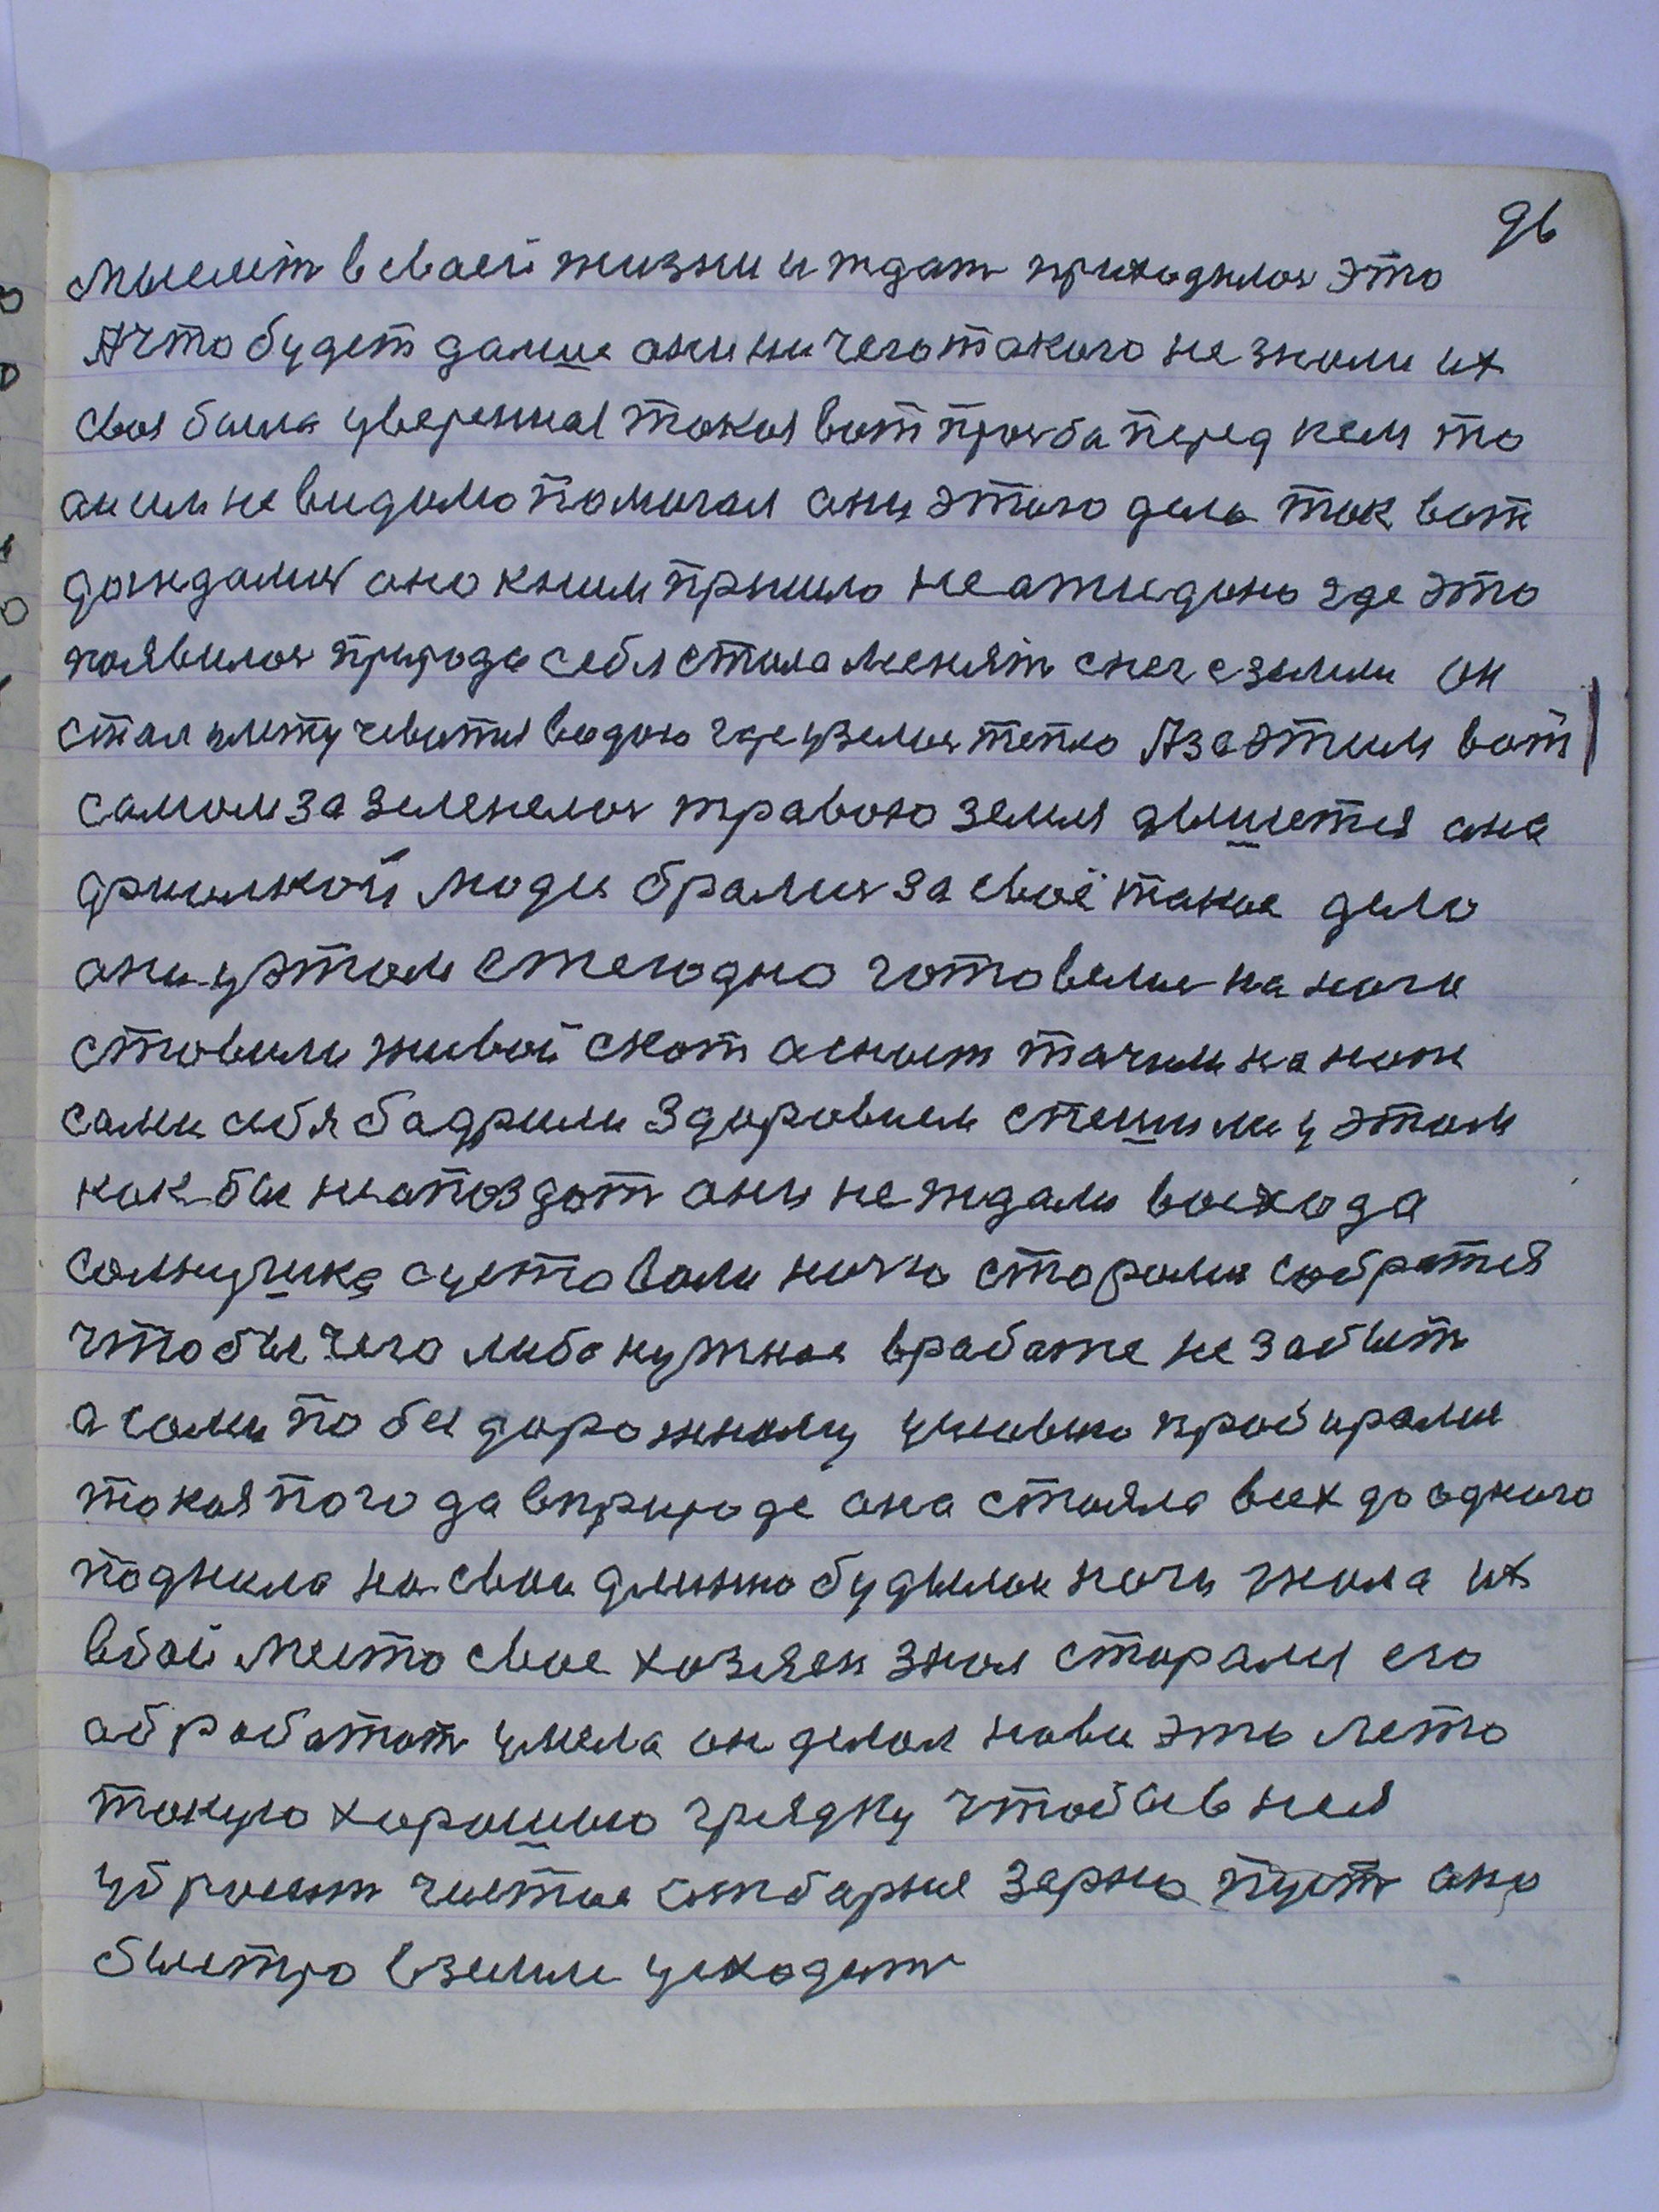 96
мыслит в сваей жизни и ждат приходилос это
А что будет далше ани ни чего такого не знали их
своя была уверенная такая вот прозба перед кем то
а им не видимо помогал ани этого дела так вот
дождалис ано к ним пришло не ажидано где это
появилос природа себя стала менят снег с земли он
стал улетучеватся водою где узялос тепло А за этим вот
самом за зеленелос травою земля дышется ана
дрыжкой люди бралис за своё такое дело
ани у этом ежегодно готовелис на ноги
ставили живой скот аснаст тачили на нож
сами себя бадрили здоровием спешили у этом
как бы не апоздат ани не ждали восхода
солнушка суетовали ночю старалис собратся
чтобы чего либо нужное в работе не забыт
а сами по без дорожному условию пробиралис
такая погода в природе ана стояла всех до одного
подняла на свои длинно будилок ночи гнала их
в бой место свое хозяен знал старался его
обработат умела он делал на вы это лето
такую хорошую грядку чтобы в нея
убросит чистое амбарное зерно пуст ано
быстро в земле усходит